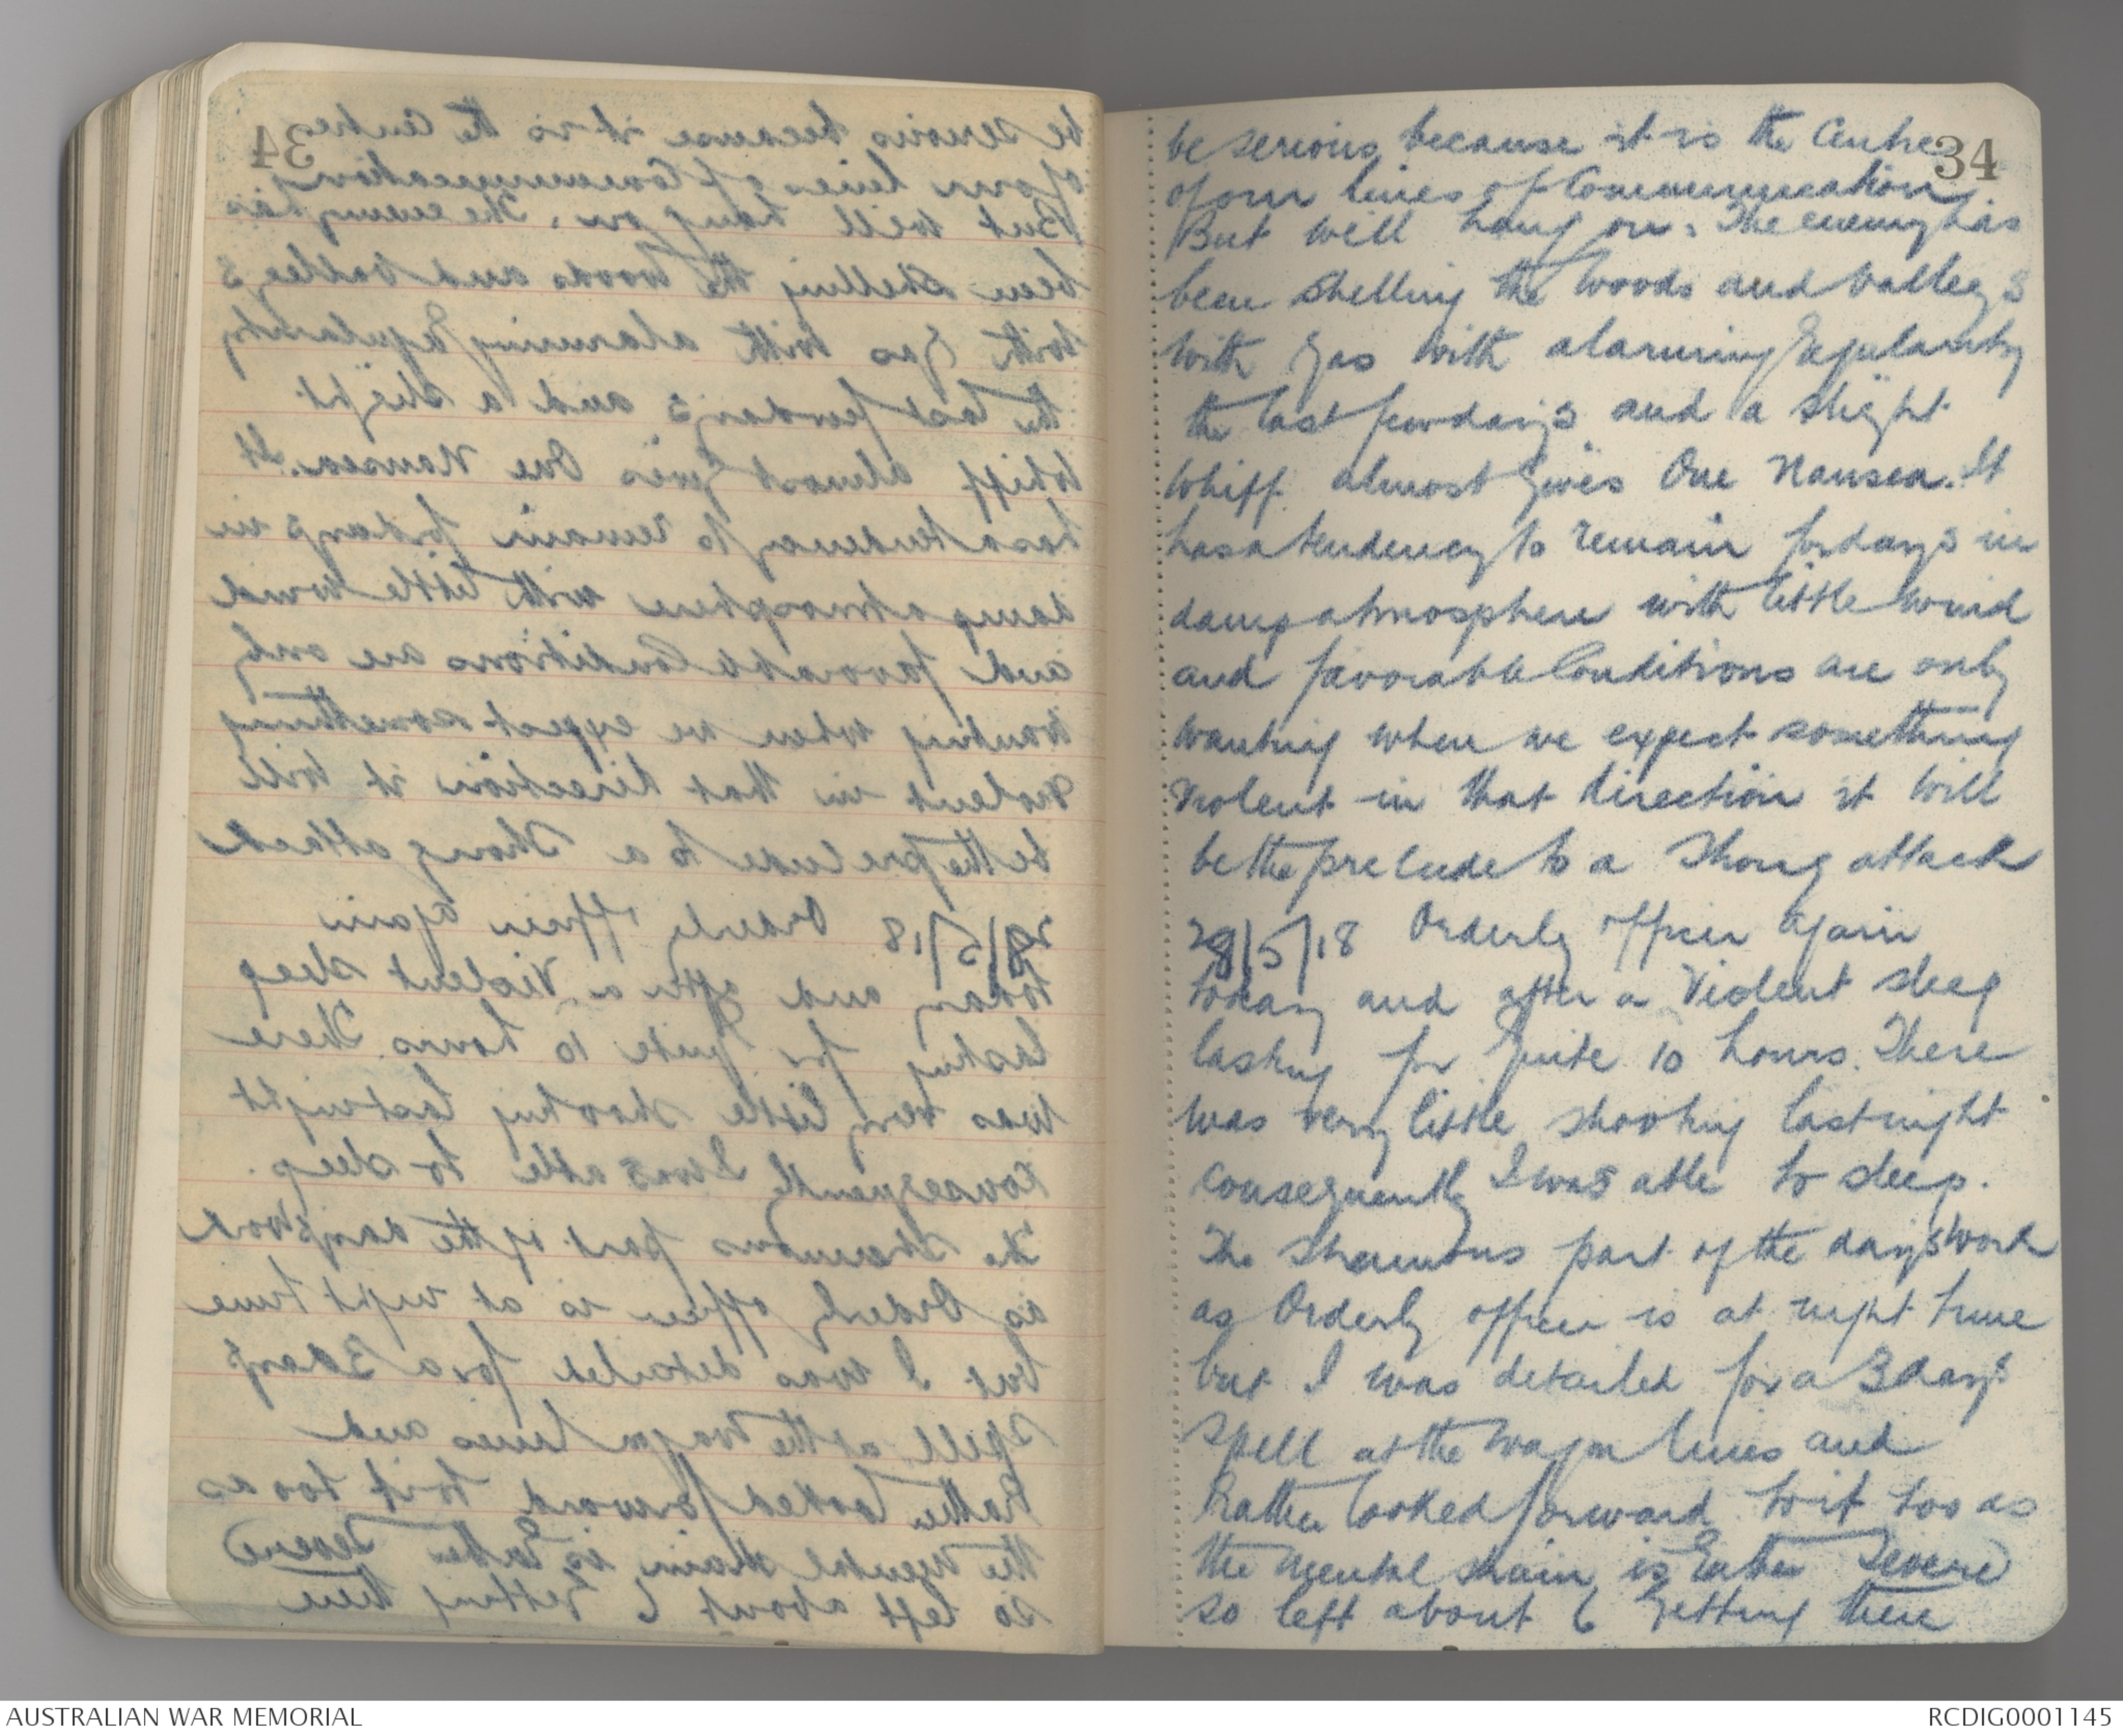 34
be serious because it is the Centre
of our lines of Communication
But will hang on. The enemy has
been shelling the woods and valleys
with gas with alarming regularity
the last few days and a slight
whiff almost gives One Nausea. It
has a tendency to remain for days in
damp atmosphere with little wind
and favorable Conditions are only
wanting when we expect something
violent in that direction it will
be the prelude to a strong attack
28/5/18 Orderly officer again
today and after a violent sleep
lasting for quite 10 hours. There
was very little shooting last night
consequently I was able to sleep.
The strenuous part of the days work
as Orderly officer is at night time
but I was detailed for a 3 days
spell at the wagon lines and
Rather looked forward to it too as
the mental strain is rather severe
so left about 6 getting there
AUSTRALIAN WAR MEMORIAL
RCDIG0001145